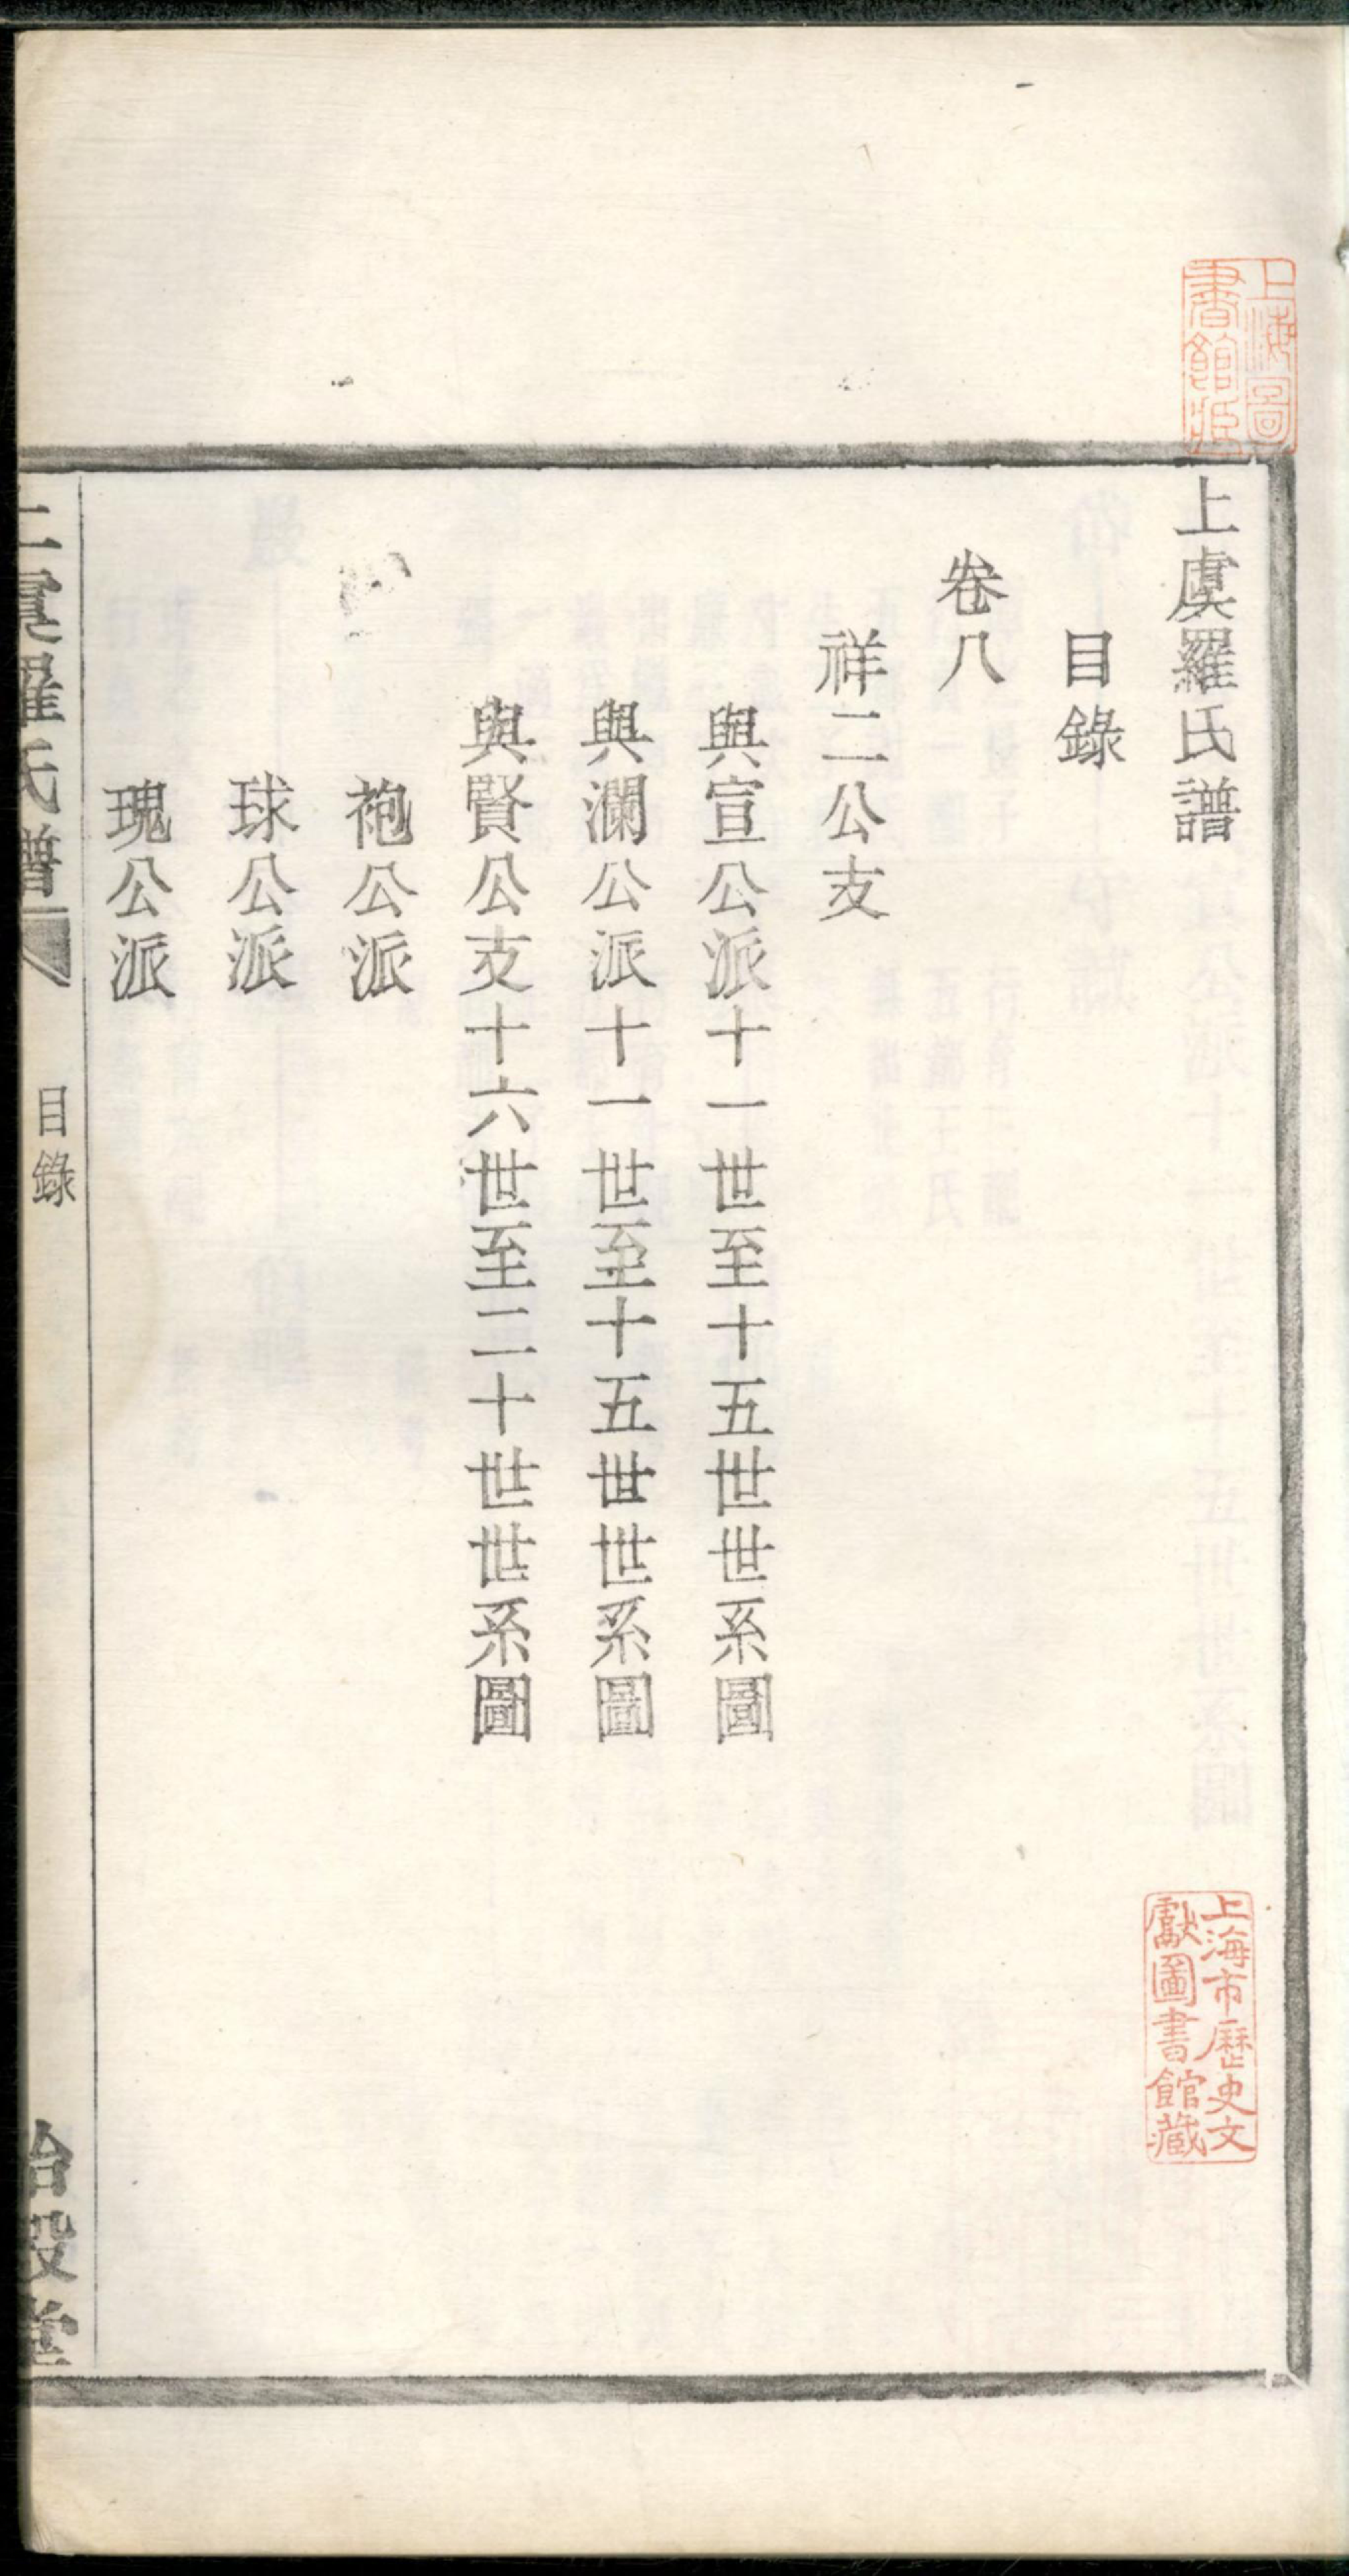 上虞羅氏譜
目錄
卷八
祥二公支
與宣公派十一世至十五世世系圖
與瀾公派十一世至十五世世系圖
與賢公支十六世至二十世世系圖
袍公派
球公派
瑰公派
上虞羅氏譜
目錄
堂
上海圖
書館藏
上海市歷史文
獻圖書館藏